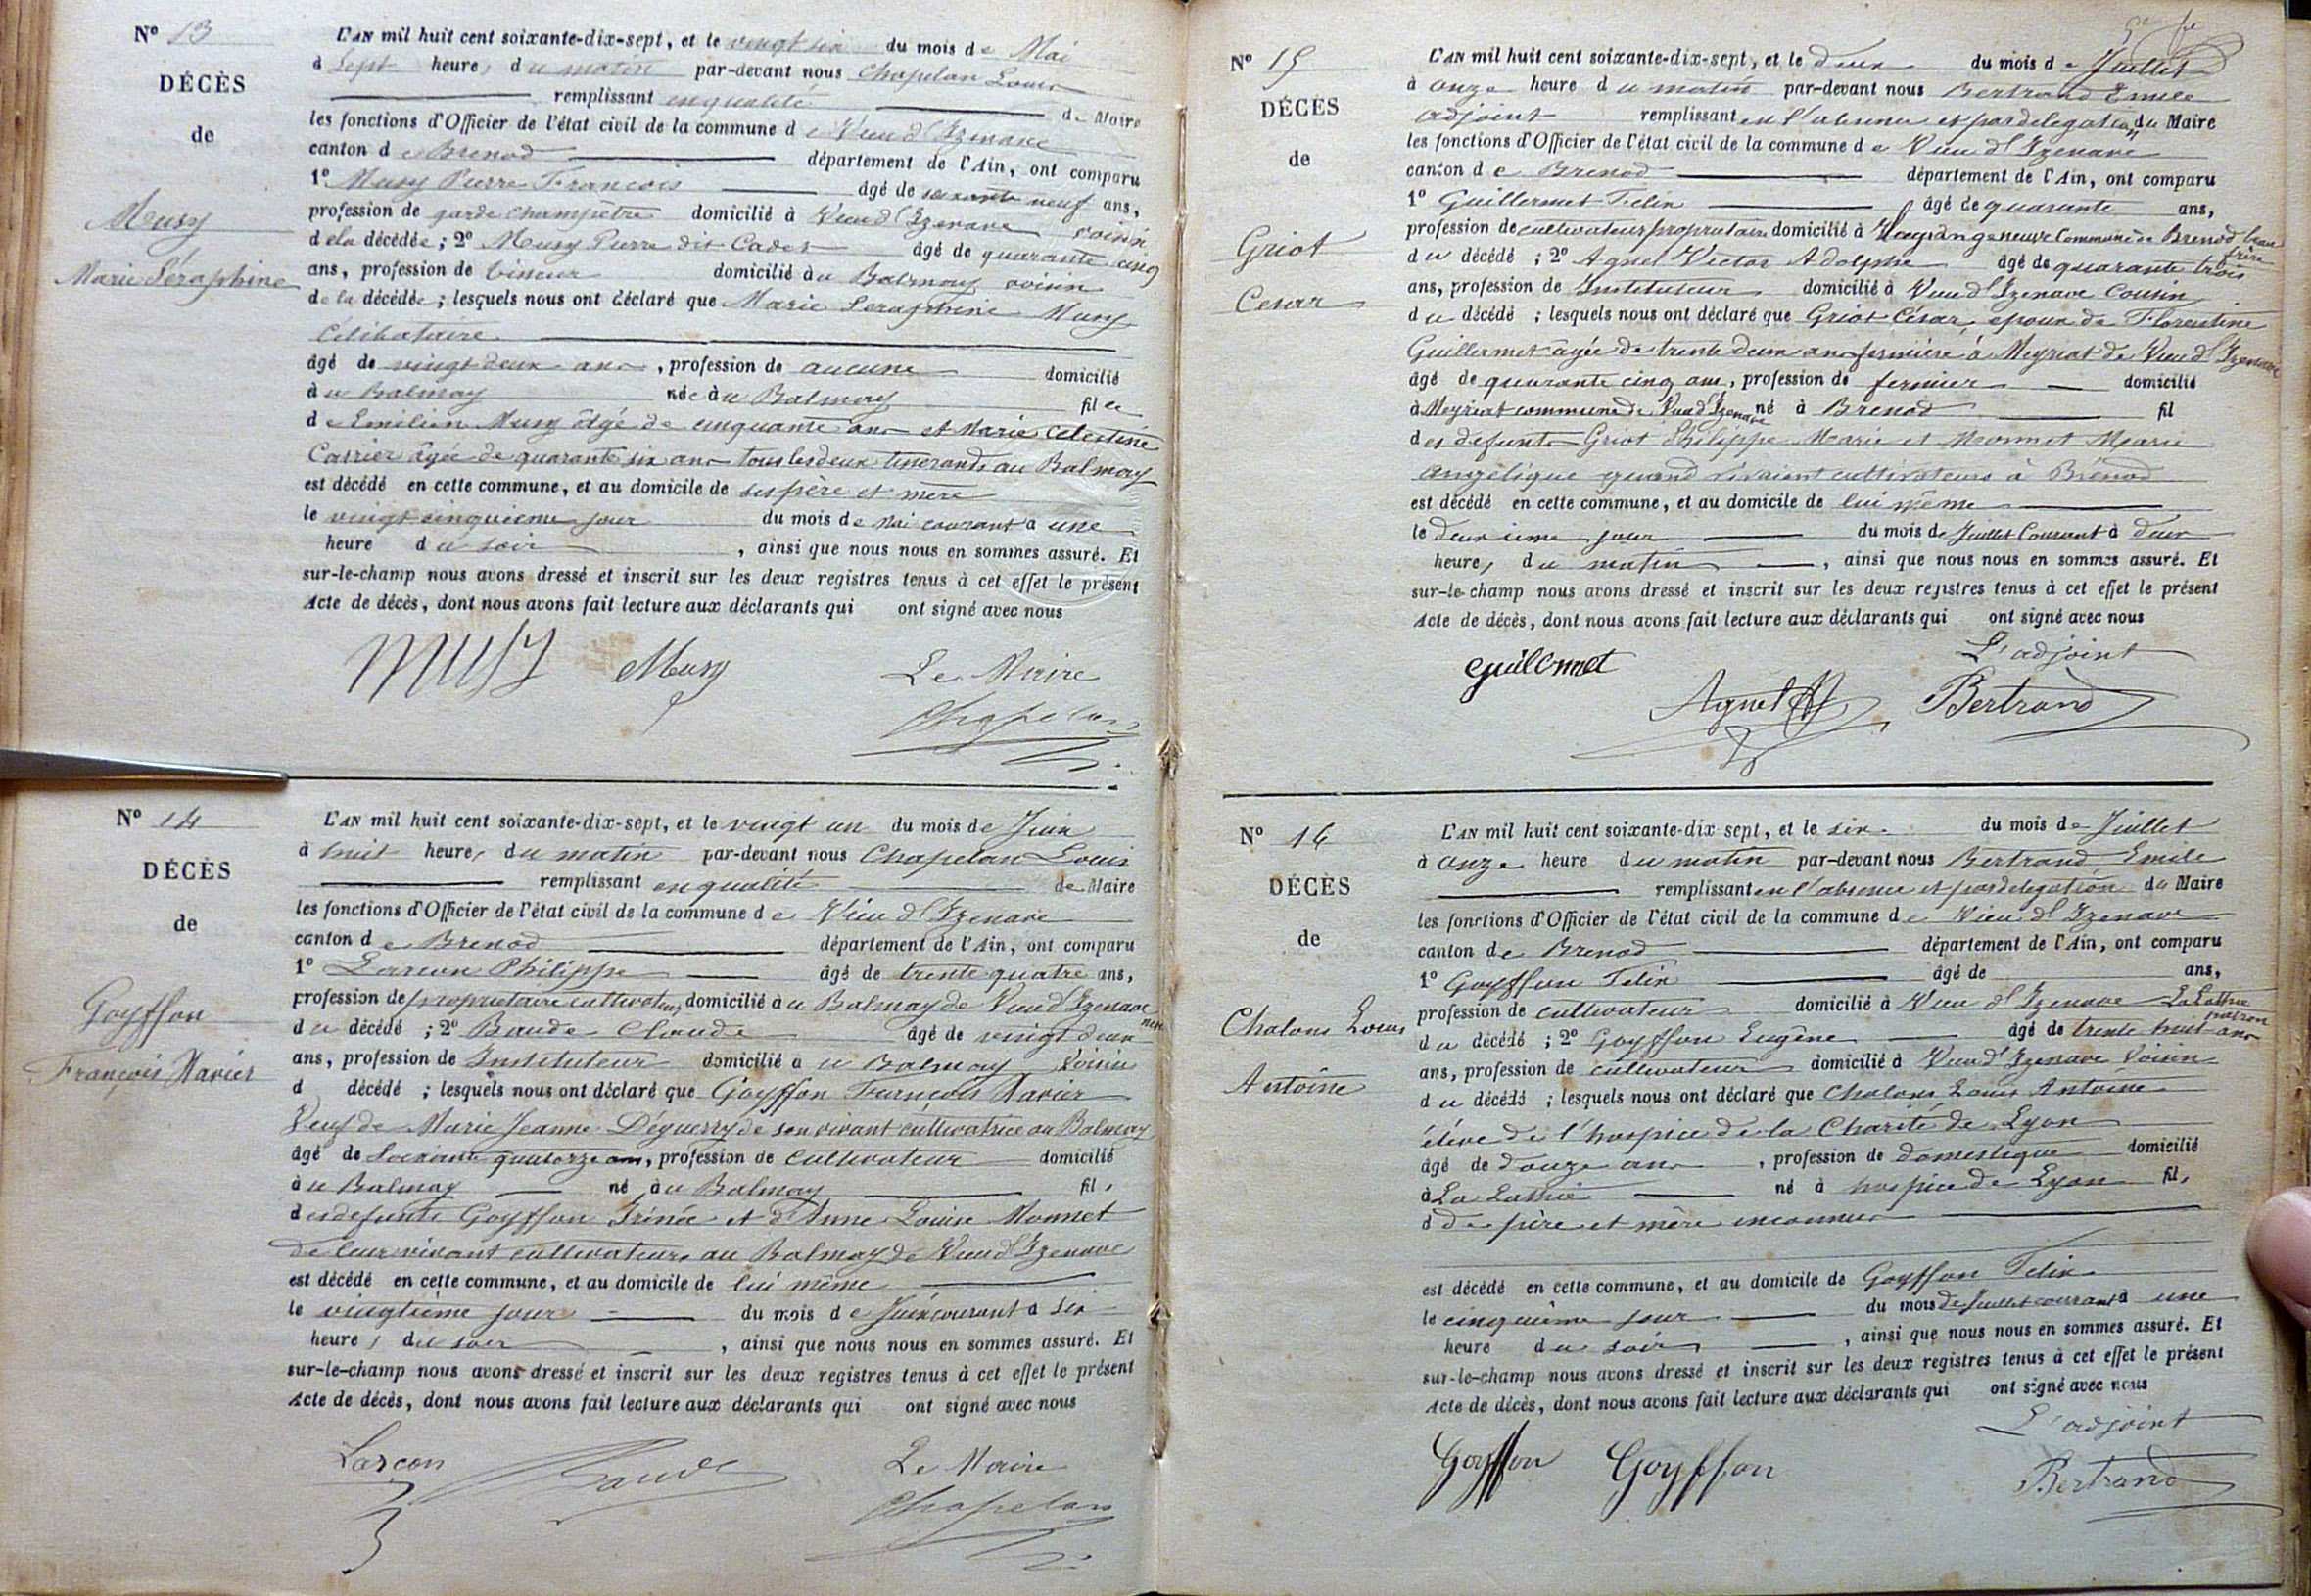 N° 13
DÉCÈS
de
Musy
Marie Séraphine
L'AN mil huit cent soixante-dix-sept, et le vingt six du mois de Mai
à Sept heures du matin par-devant nous Chapelan Louis
remplissant en qualité de Maire
les fonctions d'Officier de l'état civil de la commune de Vieu d'Izenave
canton de Brenod département de l'Ain, ont comparu
1° Musy Pierre François âgé de soixante neuf ans,
profession de garde champêtre domicilié à Vieu d'Izenave voisin
de la décédée ; 2° Musy Pierre dit Cadet âgé de quarante cinq
ans, profession de domicilié au Balmay voisin
de la décédée ; lesquels nous ont déclaré que Marie Seraphine Musy
Célibataire
âgé de vingt deux ans, profession de aucune domicilié
au Balmay née au Balmay fille
de Emilien Musy âgé de cinquante ans et Marie Celestine
Carrier âgée de quarante six ans tous les deux tisserands au Balmay
est décédé en cette commune, et au domicile de ses père et mère
le vingt cinquième jour du mois de Mai courant à une
heure du soir, ainsi que nous nous en sommes assuré. Et
sur-le-champ nous avons dressé et inscrit sur les deux registres tenus à cet effet le présent
Acte de décès, dont nous avons fait lecture aux déclarants qui ont signé avec nous
MUSY Musy Le Maire
Chapelan
N° 14
DÉCÈS
de
Goyffon
François Xavier
L'AN mil huit cent soixante-dix-sept, et le vingt un du mois de Juin
à huit heures du matin par-devant nous Chapelan Louis
remplissant en qualité de Maire
les fonctions d'Officier de l'état civil de la commune de Vieu d'Izenave
canton de Brenod département de l'Ain, ont comparu
1° Larcon Philippe âgé de trente quatre ans,
profession de propriétaire cultivateur domicilié au Balmay de Vieu d'Izenave
du décédé ; 2° Baude Claude âgé de vingt deux
ans, profession de Instituteur domicilié au Balmay Voisin
d décédé ; lesquels nous ont déclaré que Goyffon François Xavier
Veuf de Marie Jeanne Déguerry de son vivant cultivatrice au Balmay
âgé de Soixante quatorze ans, profession de Cultivateur domicilié
au Balmay né au Balmay fils
des defunts Goyffon Irénée et d'Anne Louise Monnet
de leur vivant cultivateurs au Balmay de Vieu d'Izenave
est décédé en cette commune, et au domicile de lui même
le vingtième jour du mois de Juin courant à six
heures du soir, ainsi que nous nous en sommes assuré. Et
sur-le-champ nous avons dressé et inscrit sur les deux registres tenus à cet effet le présent
Acte de décès, dont nous avons fait lecture aux déclarants qui ont signé avec nous
Larcon Baude Le Maire
Chapelan
N° 15
DÉCÈS
de
Griot
Cesar
L'AN mil huit cent soixante-dix-sept, et le deux du mois de Juillet
à onze heure du matin par-devant nous Bertrand Emile
adjoint remplissant en l'absence et par delegation du Maire
les fonctions d'Officier de l'état civil de la commune de Vieu d'Izenave
canton de Brenod département de l'Ain, ont comparu
1° Guillermet Felix âgé de quarante ans,
profession de cultivateur propriétaire domicilié à Lagrangeneuve Commune de Brenod beau frère
du décédé ; 2° Agnel Victor Adolphe âgé de quarante trois
ans, profession de Instituteur domicilié à Vieu d'Izenave Cousin
du décédé ; lesquels nous ont déclaré que Griot César, epoux de Florentine
Guillermet agée de trente deux ans fermière à Meyriat de Vieu d'Izenave
âgé de quarante cinq ans, profession de fermier domicilié
à Meyriat commune de Vieu d'Izenave né à Brenod fil
des defunts Griot Philippe Marie et Monnet Marie
Angélique quand vivaient cultivateurs à Brénod
est décédé en cette commune, et au domicile de lui même
le deuxième jour du mois de Juillet Courant à deux
heures du matin, ainsi que nous nous en sommes assuré. Et
sur-le-champ nous avons dressé et inscrit sur les deux registres tenus à cet effet le présent
Acte de décès, dont nous avons fait lecture aux déclarants qui ont signé avec nous
L'adjoint
Agnel Bertrand
N° 16
DÉCÈS
de
Chalons Louis
Antoine
L'AN mil huit cent soixante-dix sept, et le six du mois de Juillet
à onze heure du matin par-devant nous Bertrand Emile
remplissant en l'absence et par delegation du Maire
les fonctions d'Officier de l'état civil de la commune de Vieu d'Izenave
canton de Brenod département de l'Ain, ont comparu
1° Goyffon Felix âgé de ans,
profession de cultivateur domicilié à Vieu d'Izenave patron
du décédé ; 2° Goyffon Eugène âgé de trente huit ans
ans, profession de cultivateur domicilié à Vieu d'Izenave Voisin
du décédé ; lesquels nous ont déclaré que Chalons Louis Antoine
élève de l'hospice de la Charité de Lyon
âgé de douze ans, profession de domestique domicilié
à né à hospice de Lyon fils
d de père et mère inconnus
est décédé en cette commune, et au domicile de Goyffon Felix
le cinquième jour du mois de Juillet courant à une
heure du soir, ainsi que nous nous en sommes assuré. Et
sur-le-champ nous avons dressé et inscrit sur les deux registres tenus à cet effet le présent
Acte de décès, dont nous avons fait lecture aux déclarants qui ont signé avec nous
L'adjoint
Goyffon Goyffon Bertrand